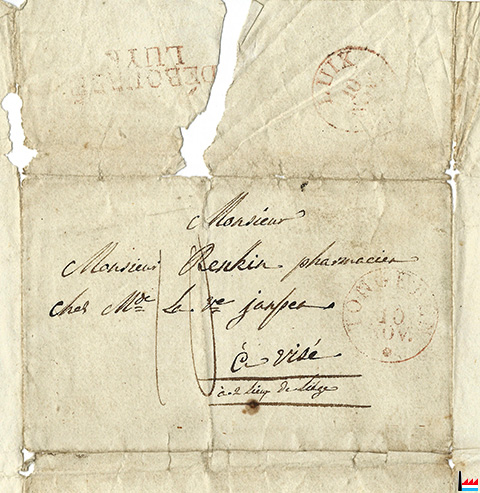 DÉBOURSÉ
LUYK
LUIK
10
Monsieur
Monsieur Renkin pharmacien
chez Mde la Ve janssen
à visé
à 2 lieux de Liége
10
TONGEREN
10
NOV